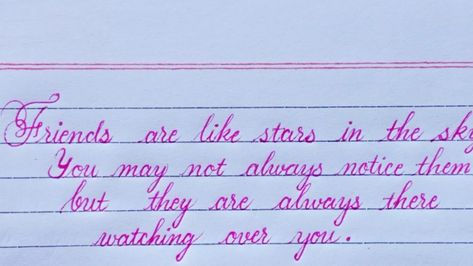 Friends are like stars in the sky
You may not always notice them
but they are always there
watching over you.